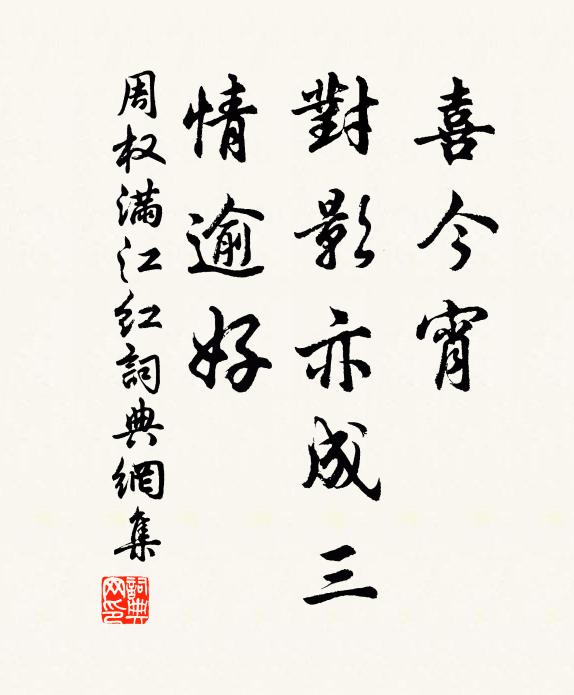 喜今宵
對影亦成三
情逾好
周权滿江红詞典網集
詞典網印